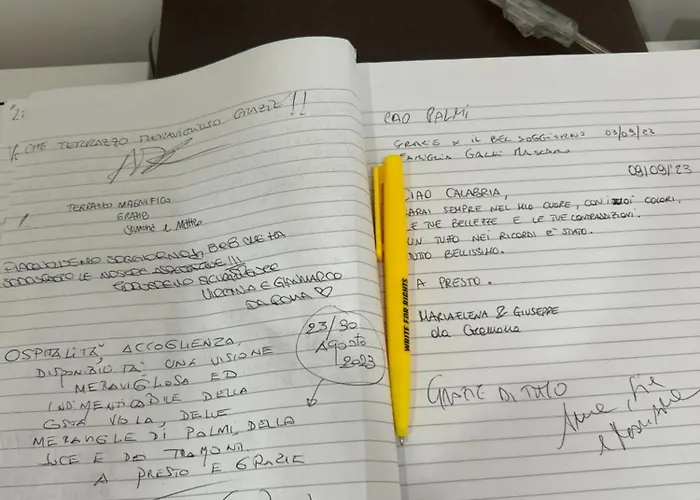 CHE TERRAZZO MERAVIGLIOSO GRAZIE!!
TERRAZZO MAGNIFICO
GRAZIE
Simone e Matteo
PIACEVOLISSIMO SOGGIORNO, IL B&B CHE HA
SODDISFATTO LE NOSTRE ASPETTATIVE!!!
VIRGINIA E GIANMARCO
DA ROMA ♡
23/30
Agosto
2023
OSPITALITÀ, ACCOGLIENZA,
DISPONIBILITÀ: UNA VISIONE
MERAVIGLIOSA ED
INDIMENTICABILE DELLA
COSTA VIOLA, DELLE
MERAVIGLIE DI PALMI, DELLA
LUCE E DEI TRAMONTI.
A PRESTO E GRAZIE
CIAO PALMI
GRAZIE X IL BEL SOGGIORNO 03/09/23
FAMIGLIA GALLI
09/09/23
CIAO CALABRIA,
SARAI SEMPRE NEL MIO CUORE, CON I TUOI COLORI,
LE TUE BELLEZZE E LE TUE CONTRADDIZIONI.
UN TUFFO NEI RICORDI È STATO.
TUTTO BELLISSIMO.
A PRESTO.
MARIAELENA & GIUSEPPE
da Cremona
WRITE FOR RIGHTS
GRAZIE DI TUTTO